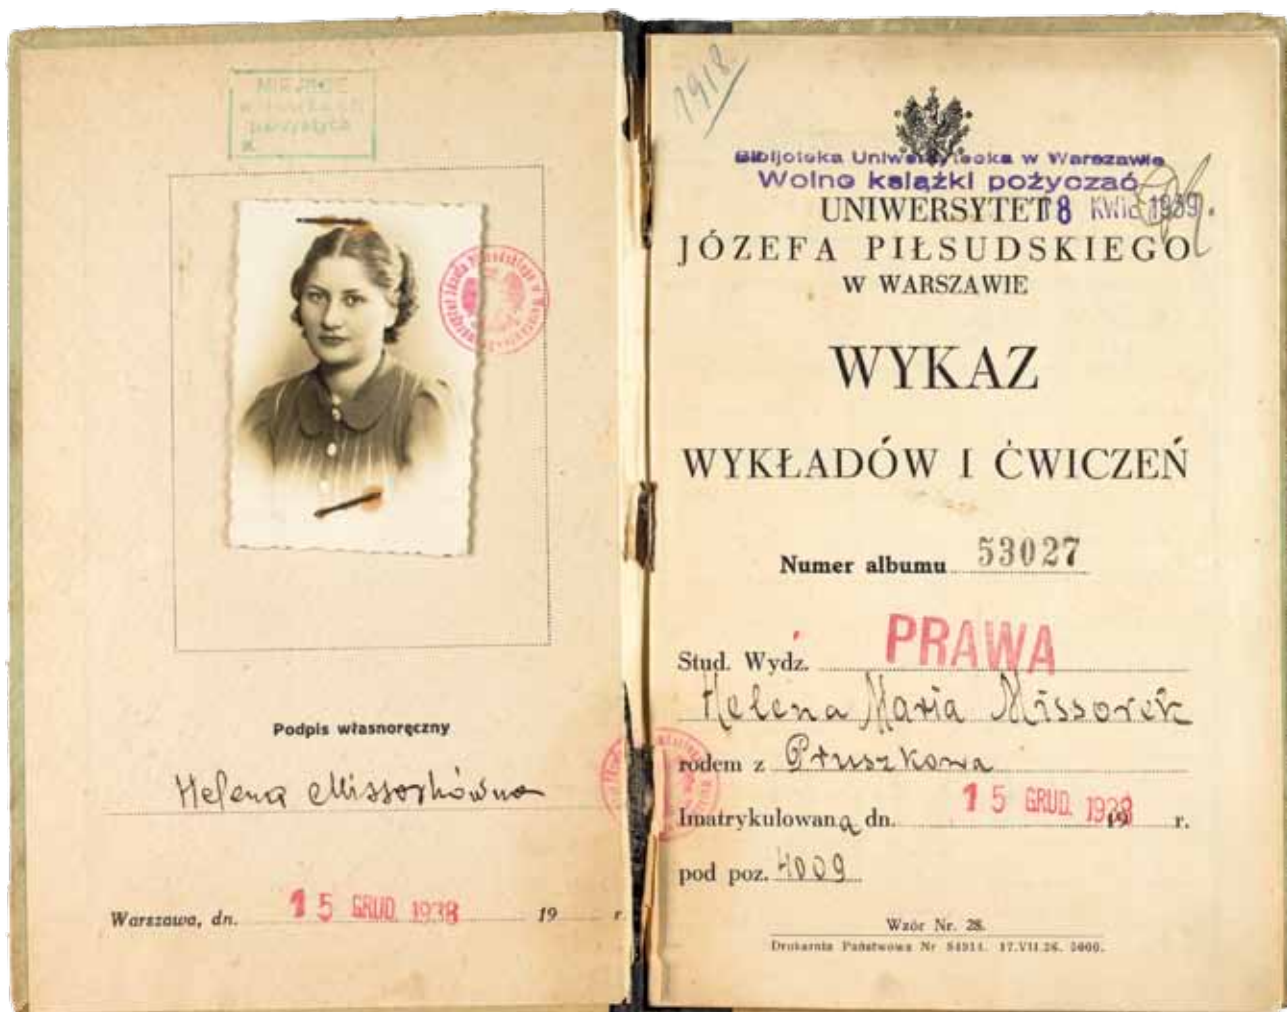 MIEJSCE
Podpis własnoręczny
Helena Missorkówna
Warszawa, dn. 15 GRUD. 1938 19 r.
1918
Bibljoteka Uniwersytecka w Warszawie
Wolno książki pożyczać
UNIWERSYTET 18 KWIE 1939
JÓZEFA PIŁSUDSKIEGO
W WARSZAWIE
WYKAZ
WYKŁADÓW I ĆWICZEŃ
Numer albumu 53027
Stud. Wydz. PRAWA
Helena Maria Missorek
rodem z Pruszkowa
Imatrykulowana dn. 15 GRUD. 1938 19 r.
pod poz. 4009
Wzór Nr. 28.
Drukarnia Państwowa Nr 17.VII.36. 5000.